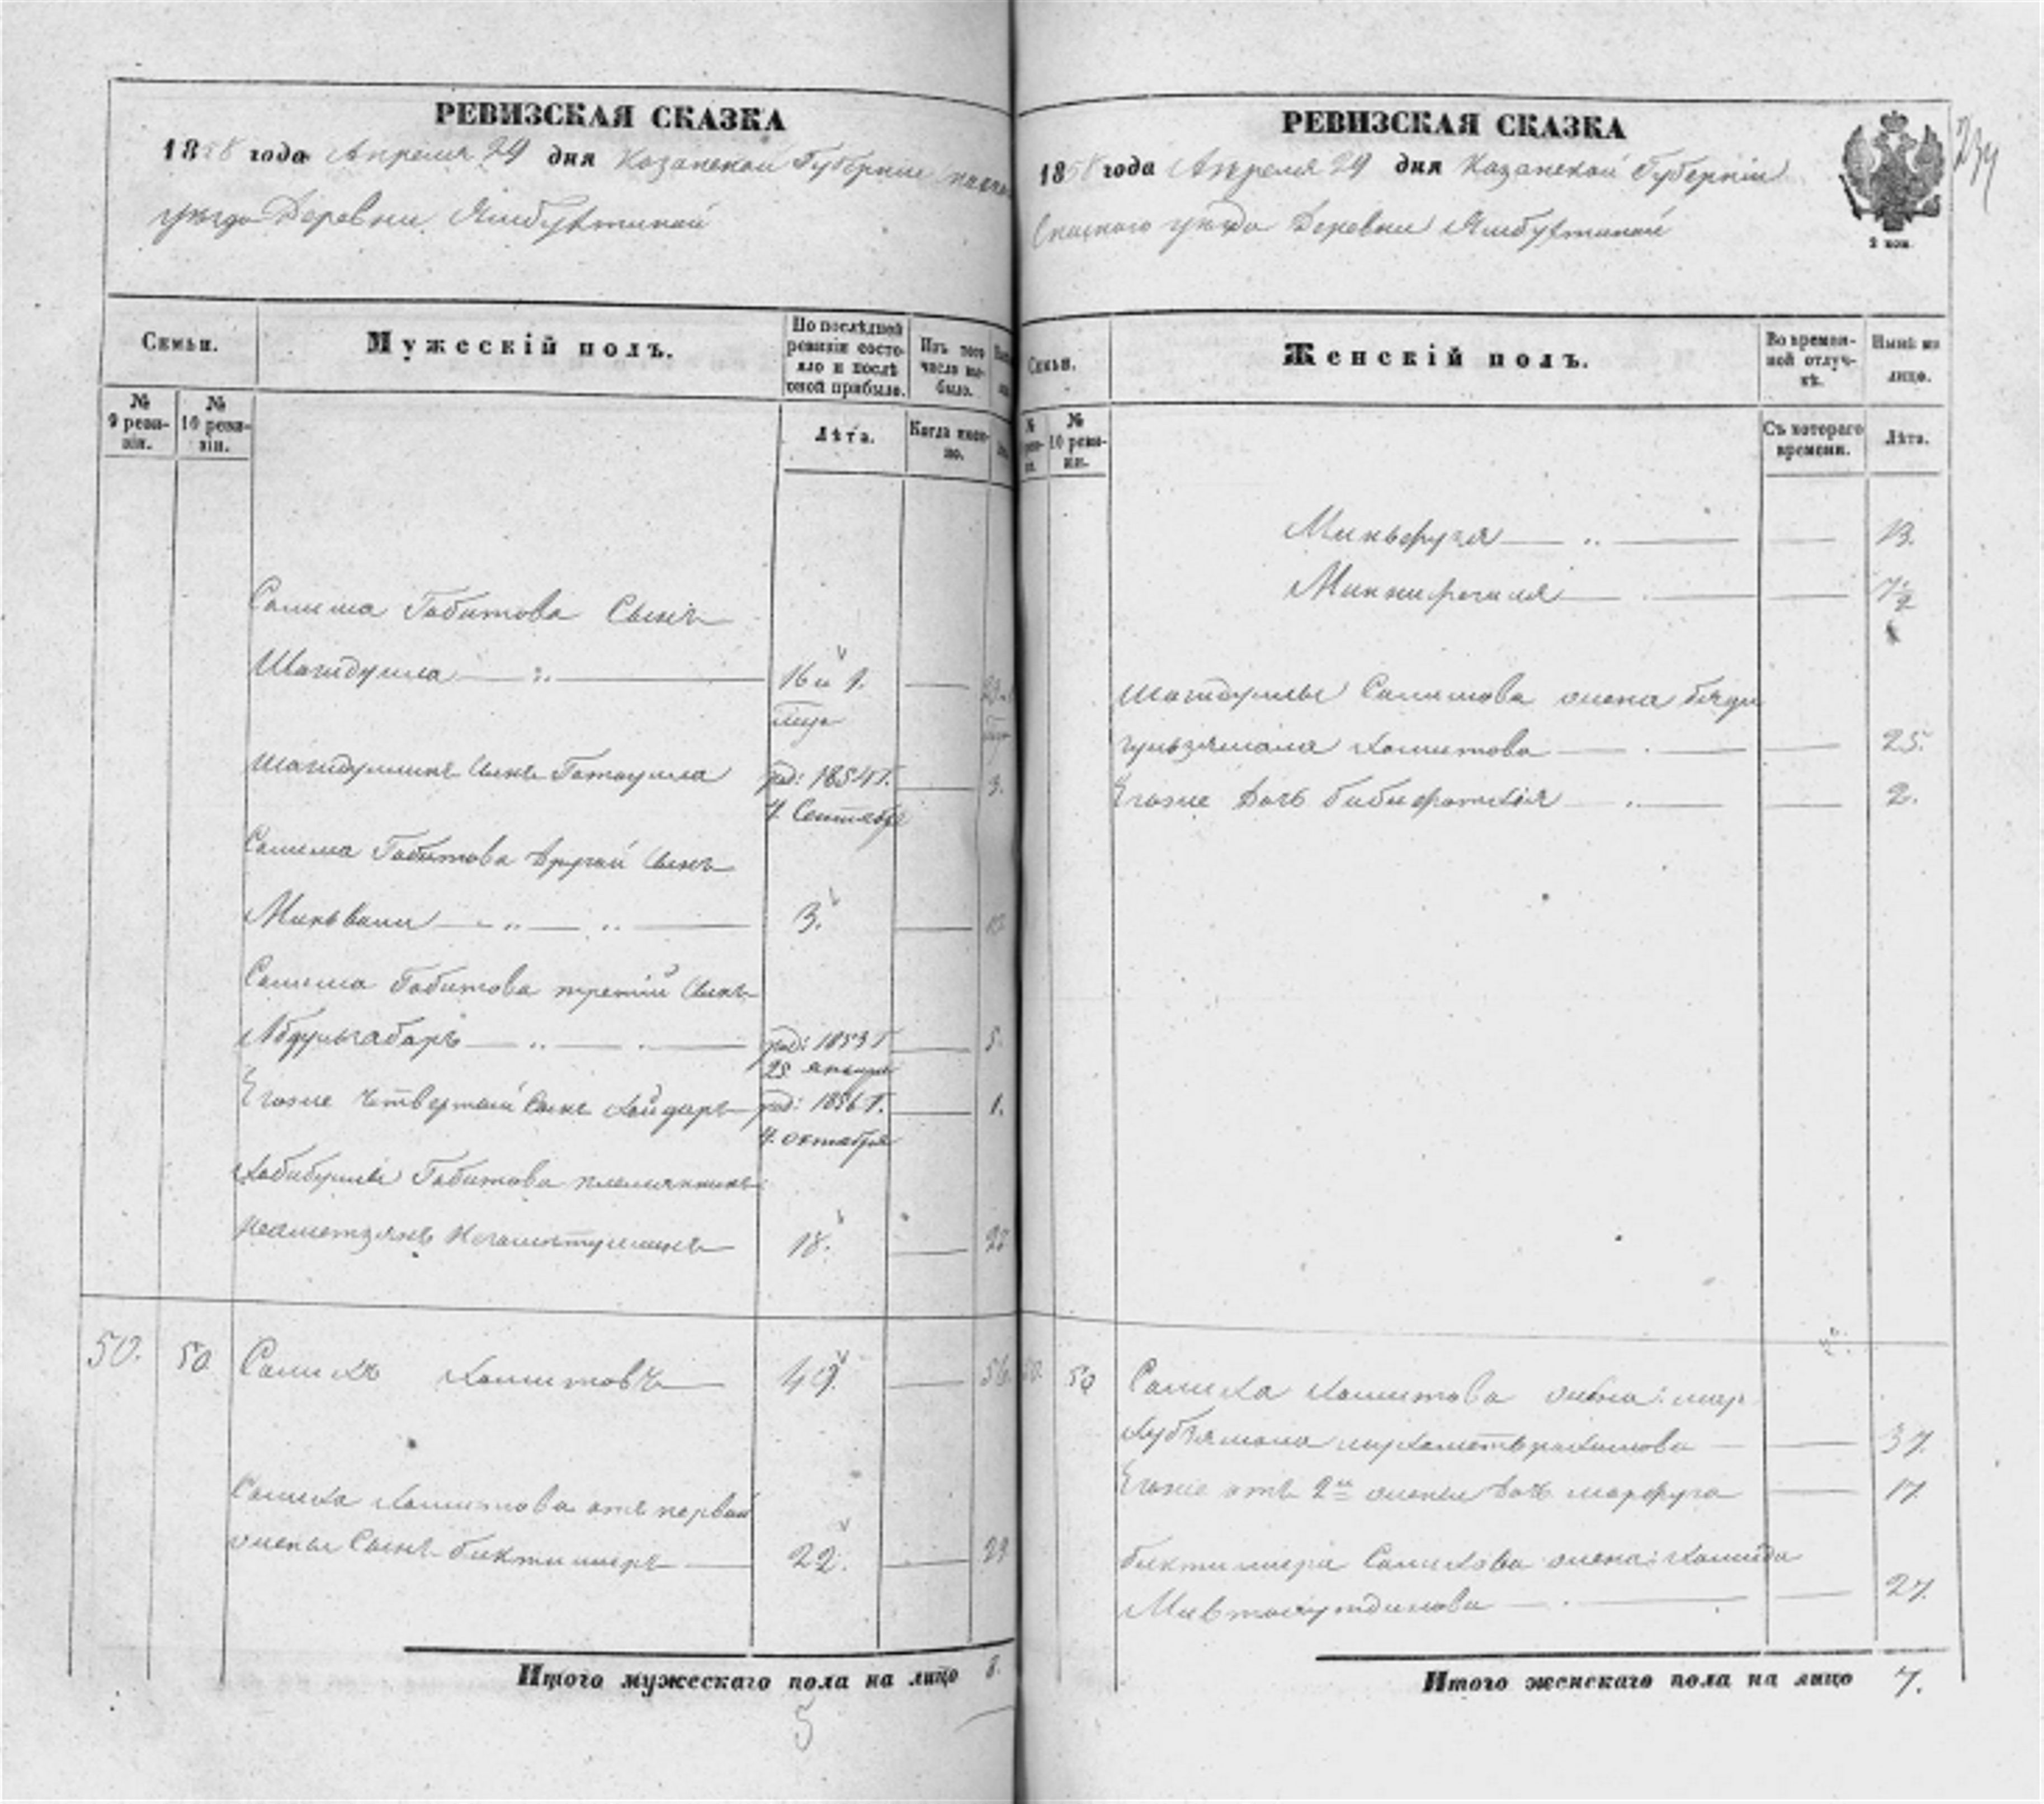 РЕВИЗСКАЯ СКАЗКА
1858 года Апреля 29 дня Казанской Губернiи
уезда Деревни Ямбухтиной
Семьи.
Мужескiй полъ.
По послѣдней ревизiи состояло и послѣ оной прибыло.
Изъ того числа выбыло.
№ 9 ревизiи.
№ 10 ревизiи.
Лѣта.
Когда именно.
Салима Габитова Сынъ
Шагидулла 16 и 9.
Шагидуллинъ Сынъ Гатаулла род: 1854 г. 3.
4 Сентября
Салима Габитова другой Сынъ
Миньвали 3. 13
Салима Габитова третiй Сынъ
Абдулгабаръ род: 1853 г 5.
25 января
Егоже четвертый Сынъ Хайдаръ род: 1856 г. 1.
4 октября
Хабибуллы Габитова племянникъ
18. 27
50. 50 Салихъ Хамитовъ 49. 56
Салиха Хамитова отъ первой
жены Сынъ Биктимиръ 22. 29
Итого мужескаго пола на лицо 8.
5
РЕВИЗСКАЯ СКАЗКА
1858 года Апреля 29 дня Казанской Губернiи
Спаскаго уезда Деревни Ямбухтиной
2 коп.
234
Семьи.
Женскiй полъ.
Во временной отлучкѣ.
Нынѣ на лицо.
№ 10 ревизiи.
Съ котораго времени.
Лѣта.
13.
7½
Шагидуллы Салимова жена Бяди
гульзямала Хамитова 25.
Егоже дочь Бибифатихiя 2.
50 Салиха Хамитова жена:
37.
Егоже отъ 2й жены дочь Марфуга 17
Биктимира Салихова жена: Хамида
27.
Итого женскаго пола на лицо 7.